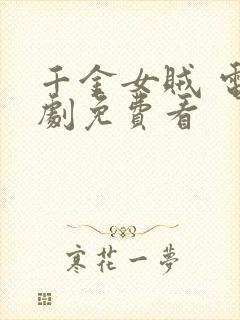 千金女賊 電
劇免費看
寒花一夢